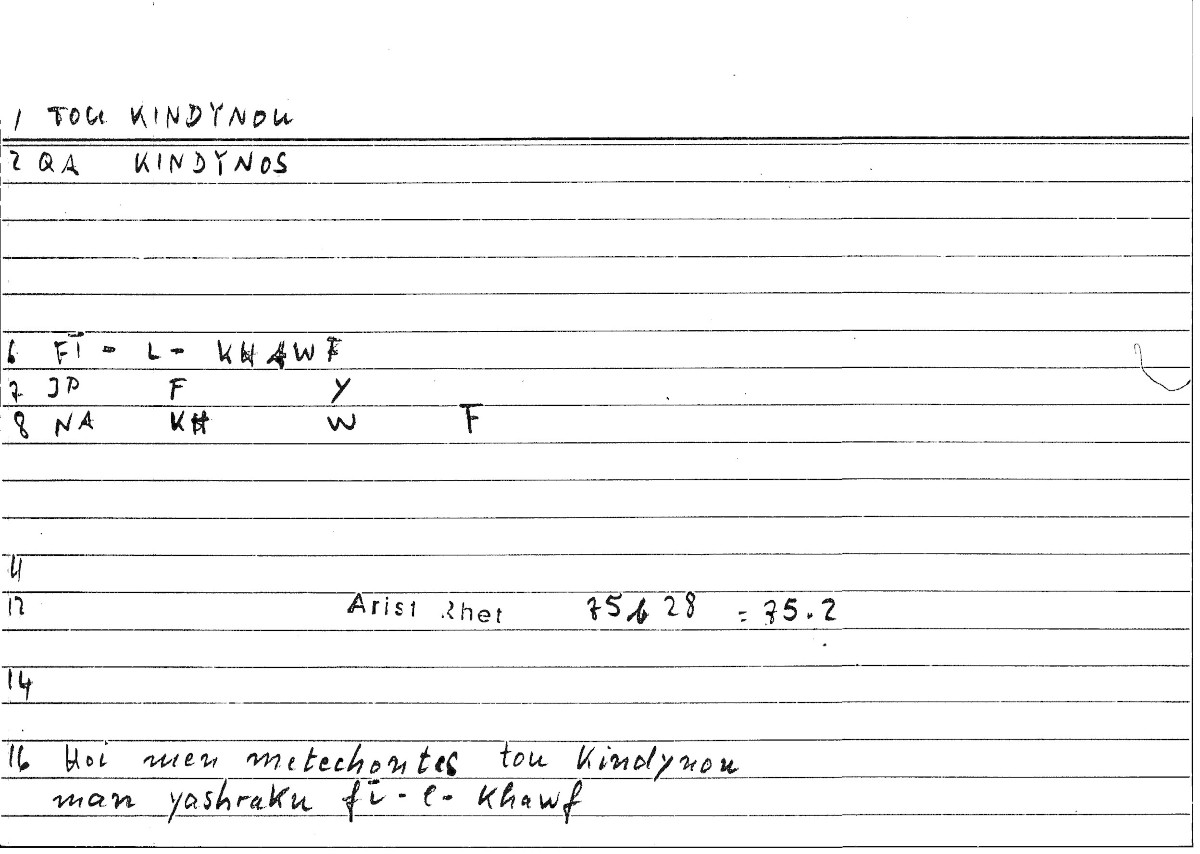 1 TOU KINDYNOU
2 QA KINDYNOS
6 FĪ - L - KHAWF
7 JP F Y
8 NA KH W F
11
12 Arist Rhet 75b28 = 75.2
14
16 Hoi men metechontes tou kindynou
man yashraku fī-l-khawf